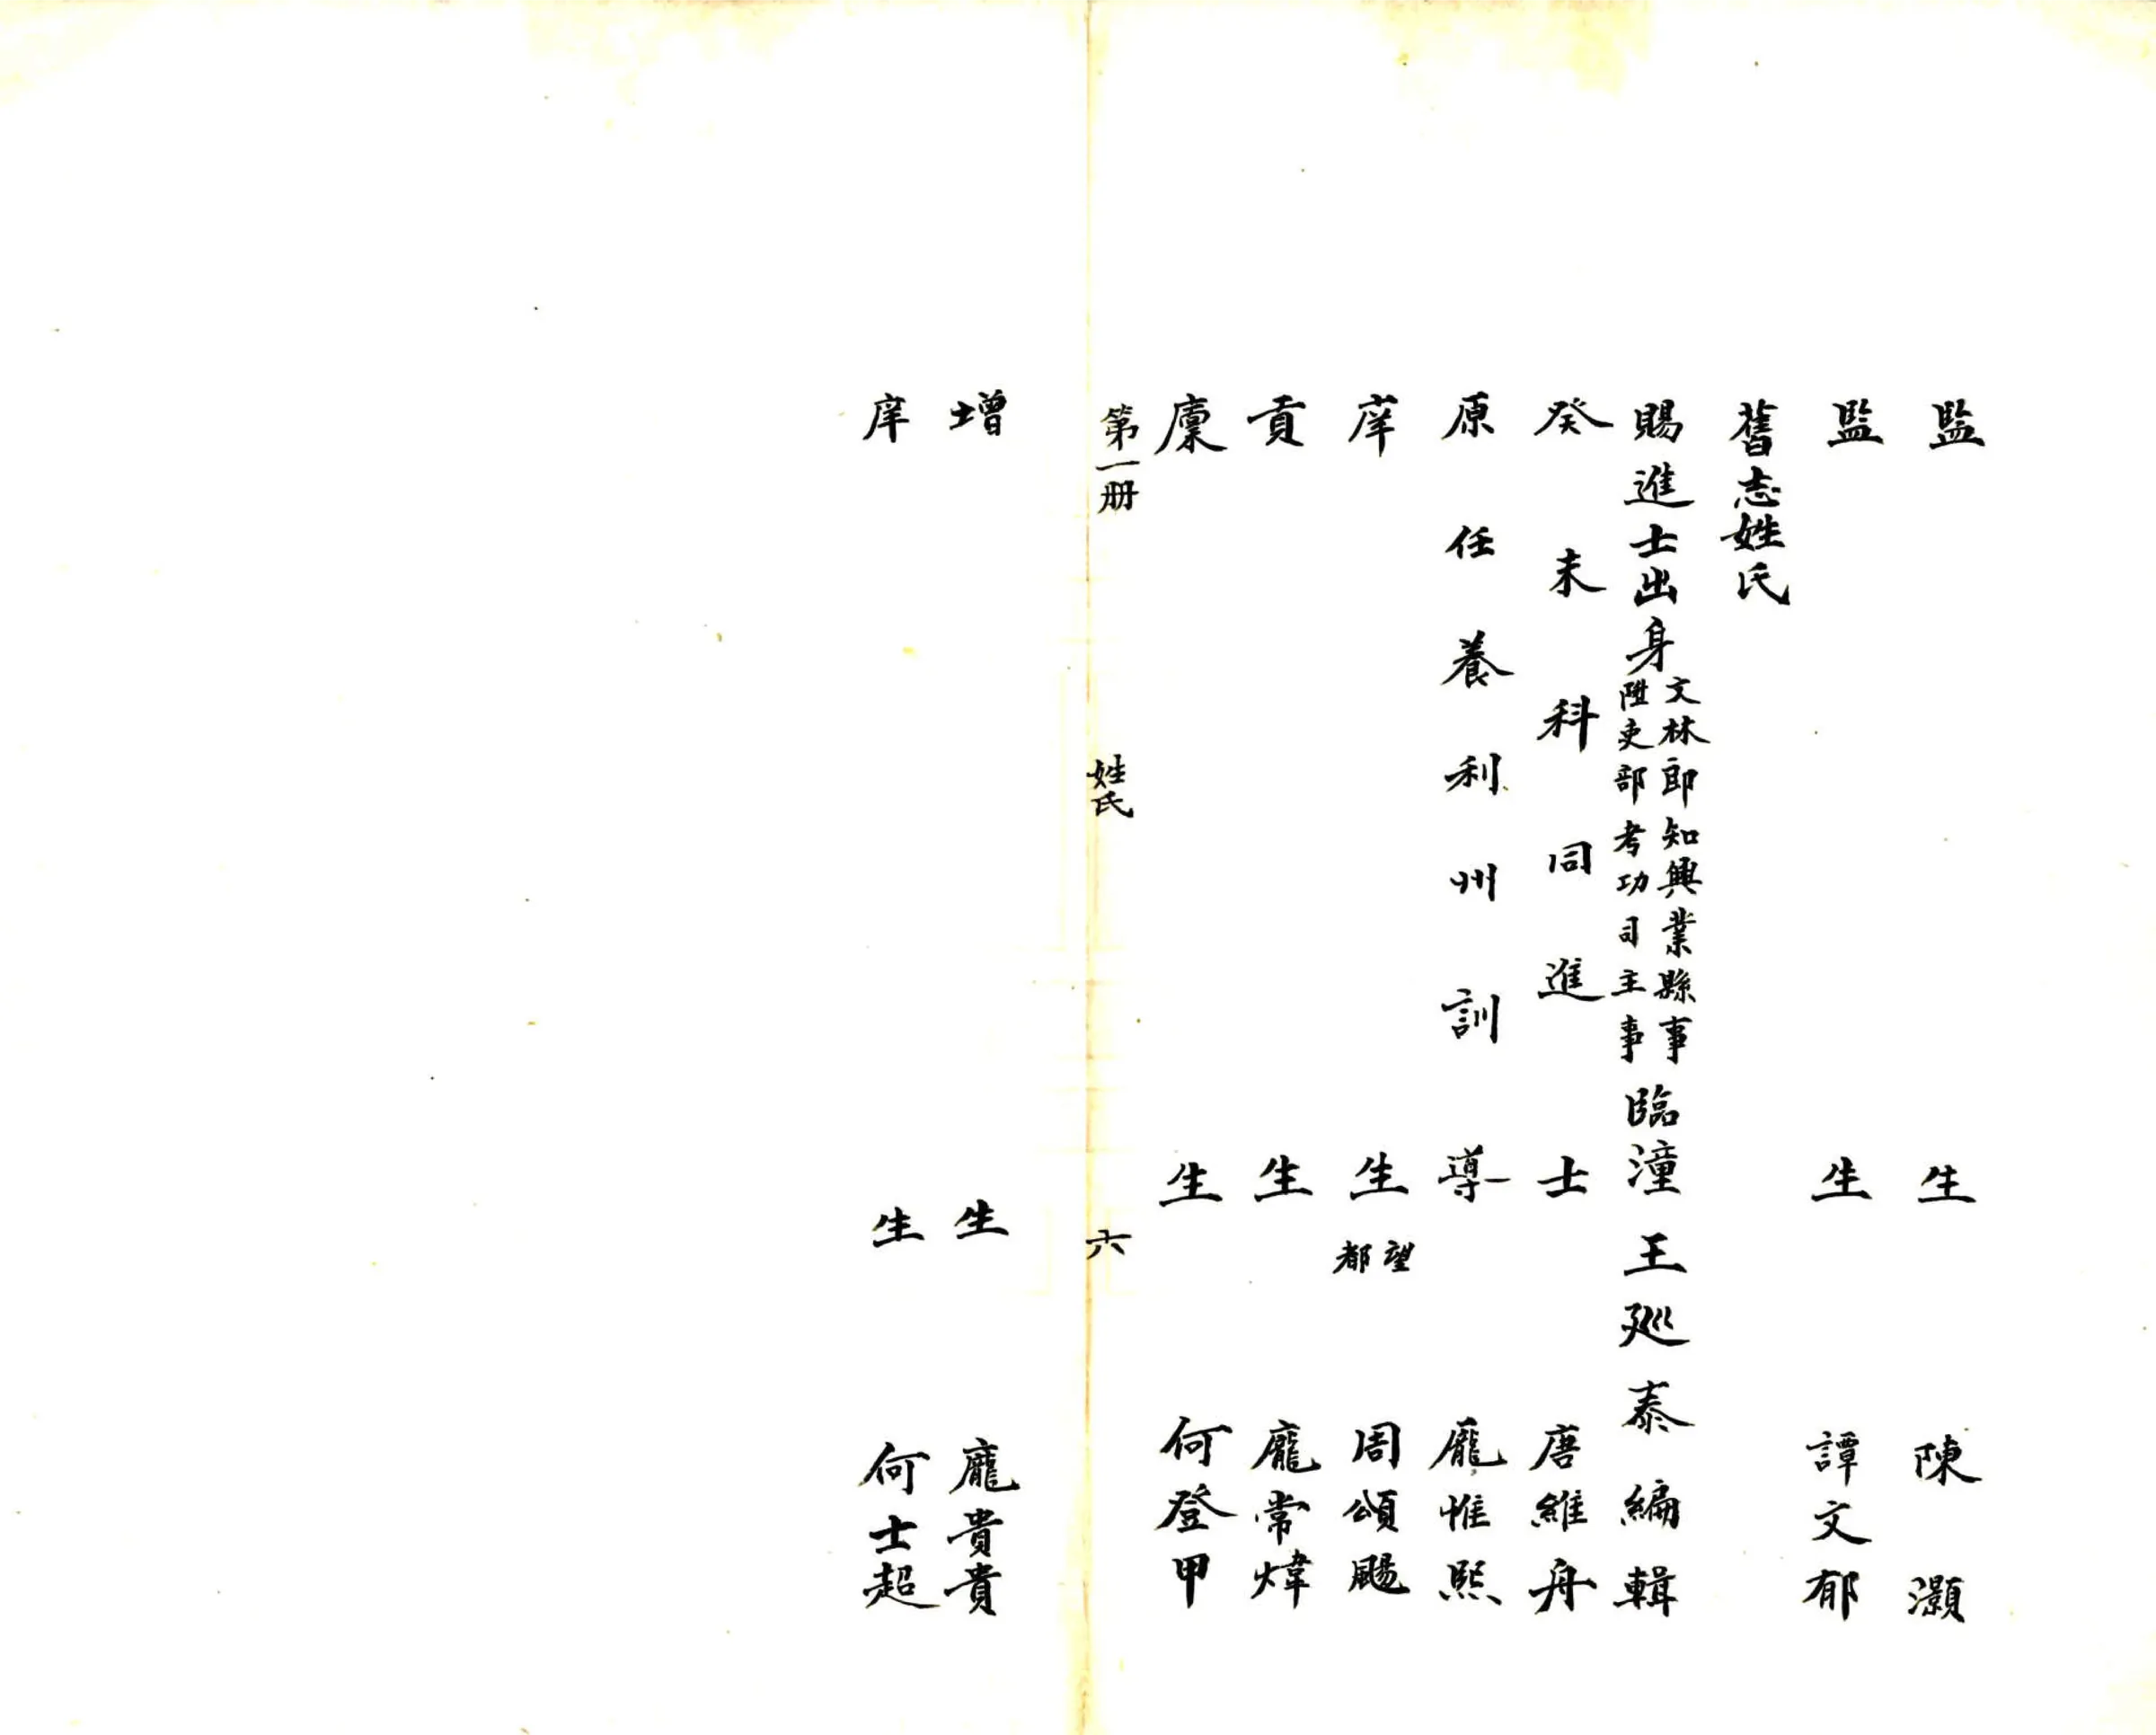 監生陳灝
監生譚文郁
舊志姓氏
賜進士出身文林郎知興業縣事陞吏部考功司主事臨潼王廵泰編輯
癸未科同進士唐維舟
原任養利州訓導龐惟熙
庠生望都周頌颺
貢生龐常煒
廩生何登甲
第一册 姓氏 六
增生龐貴貴
庠生何士超